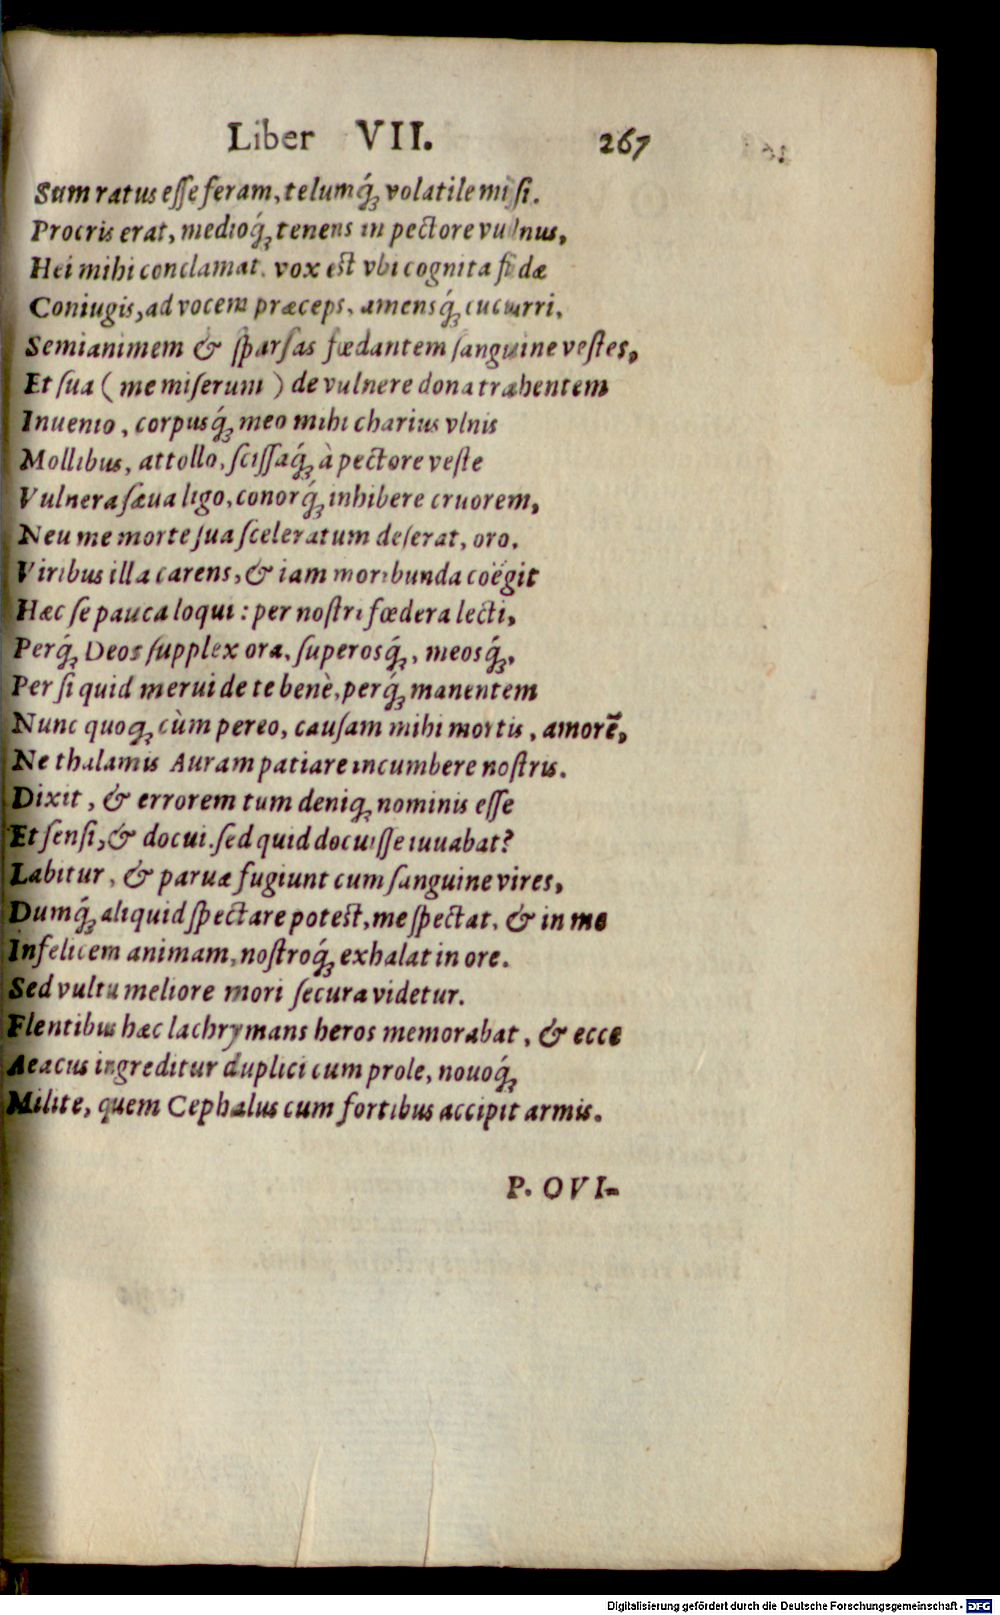 Liber VII. 267
Sum ratus esse feram, telumq́; volatile misi.
Procris erat, medioq́; tenens in pectore vulnus,
Hei mihi conclamat. vox est vbi cognita fidæ
Coniugis, ad vocem præceps, amensq́; cucurri,
Semianimem & sparsas fœdantem sanguine vestes,
Et sua (me miserum) de vulnere dona trahentem
Inuenio, corpusq́; meo mihi charius vlnis
Mollibus, attollo, scissaq́; à pectore veste
Vulnera sæua ligo, conorq́; inhibere cruorem,
Neu me morte sua sceleratum deserat, oro.
Viribus illa carens, & iam moribunda coëgit
Hæc se pauca loqui: per nostri fœdera lecti,
Perq́; Deos supplex ora, superosq́;, meosq́;,
Per si quid merui de te benè, perq́; manentem
Nunc quoq; cùm pereo, causam mihi mortis, amorē,
Ne thalamis Auram patiare incumbere nostris.
Dixit, & errorem tum deniq; nominis esse
Et sensi, & docui. sed quid docuisse iuuabat?
Labitur, & paruæ fugiunt cum sanguine vires,
Dumq́; aliquid spectare potest, me spectat, & in me
Infelicem animam, nostroq́; exhalat in ore.
Sed vultu meliore mori secura videtur.
Flentibus hæc lachrymans heros memorabat, & ecce
Aeacus ingreditur duplici cum prole, nouoq́;
Milite, quem Cephalus cum fortibus accipit armis.
P. OVI-
Digitalisierung gefördert durch die Deutsche Forschungsgemeinschaft - DFG